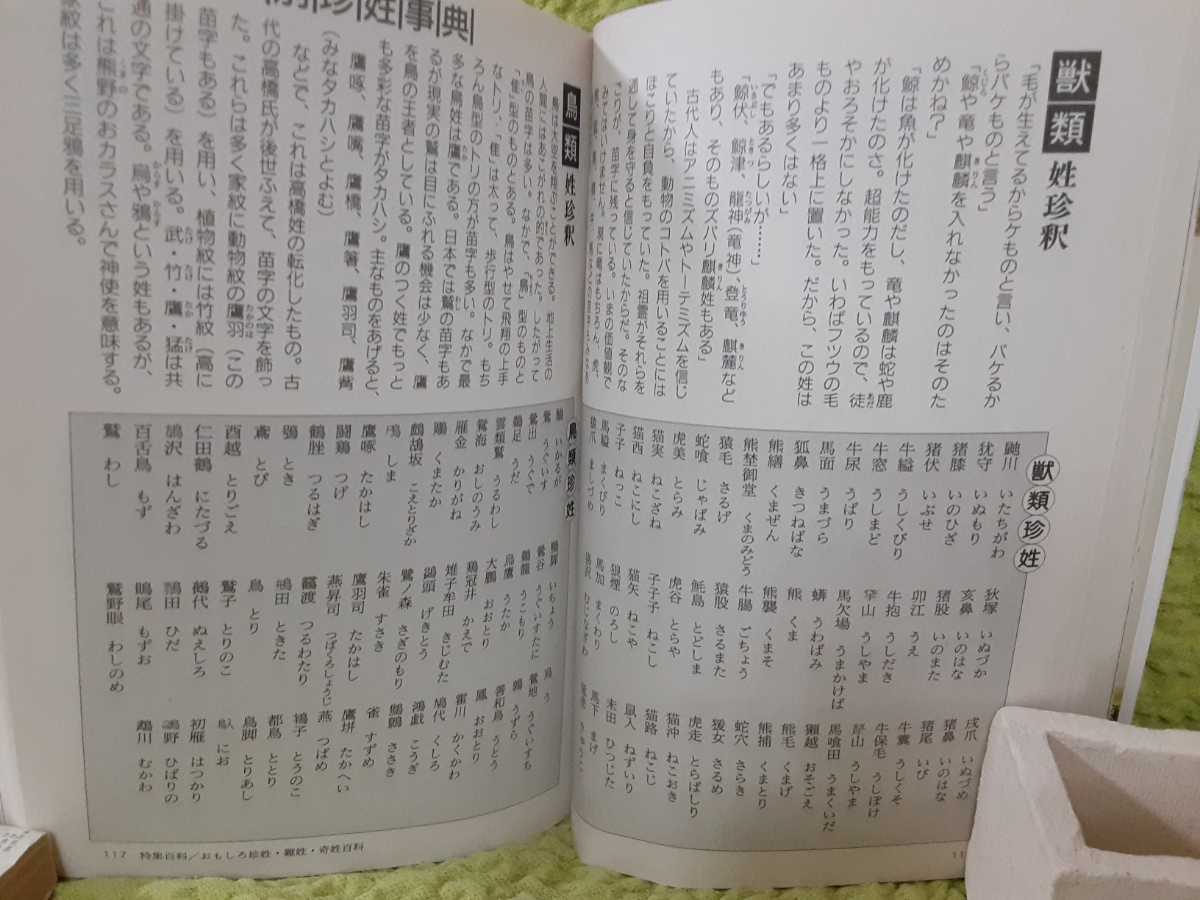 獣類姓珍釈
「毛が生えてるからケものと言い、バケるか
らバケものと言う」
「鯨や竜や麒麟を入れなかったのはそのた
めかね?」
「鯨は魚が化けたのだし、竜や麒麟は蛇や鹿
が化けたのさ。超能力をもっているので、徒
やおろそかにしなかった。いわばフツウの毛
ものより一格上に置いた。だから、この姓は
あまり多くはない」
「でもあるらしいが……」
「鯨伏、鯨津、龍神(竜神)登竜、麒麓など
もあり、そのものズバリ麒麟姓もある」
古代人はアニミズムやトーテミズムを信じ
ていたから、動物のコトバを用いることには
ほこりと自負をもっていた。祖霊がそれらを
通して身を守ると信じていたからだ。そのな
ごりが、苗字に残っている。いまの価値観で
獣類珍姓
鼬川 いたちがわ
犹守 いぬもり
猪膝 いのひざ
猪伏 いぶせ
牛縊 うしくびり
牛窓 うしまど
牛尿 うばり
馬面 うまづら
狐鼻 きつねばな
熊繕 くまぜん
熊埜御堂 くまのみどう
猿毛 さるげ
蛇喰 じゃばみ
虎美 とらみ
猫実 ねこざね
猫西 ねこにし
子子 ねっこ
馬縊 まくびり
猿爪 ましづめ
狄塚 いぬづか
亥鼻 いのはな
猪股 いのまた
卯江 うえ
牛抱 うしだき
牟山 うしやま
馬欠場 うまかけば
蟒 うわばみ
熊 くま
熊襲 くまそ
牛腸 ごちょう
猿股 さるまた
魹島 とどしま
虎谷 とらや
子子子 ねこし
猫矢 ねこや
狼煙 のろし
馬加 まくわり
戌爪 いぬづめ
猪鼻 いのはな
猪尾 いび
牛糞 うしくそ
牛保毛 うしぼけ
馬喰田 うまくいだ
獺越 おそごえ
熊毛 くまげ
熊捕 くまとり
蛇穴 さらき
猨女 さるめ
虎走 とらばしり
猫沖 ねこおき
猫路 ねこじ
鼠入 ねずいり
未田 ひつじた
馬下 まげ
姓事典
鳥類姓珍釈
鳥は大空を翔ぶことができる。地上生活の
人間にはあこがれの的であった。したがって
鳥の苗字は多い。なかで、「鳥」型のものと
「隹」型のものとある。鳥はやせて飛翔の上手
なトリ、「隹」は太って、歩行型のトリ。もち
ろん鳥型のトリの方が苗字も多い。なかで最
多な鳥姓は鷹である。日本では鷲の苗字もあ
るが現実の鷲は目にふれる機会は少なく、鷹
を鳥の王者としている。鷹のつく姓でもっと
も多彩な苗字がタカハシ。主なものをあげると、
鷹啄、鷹嘴、鷹橋、鷹箸、鷹羽司、鷹觜
(みなタカハシとよむ)
などで、これは高橋姓の転化したもの。古
代の高橋氏が後世ふえて、苗字の文字を飾っ
た。これらは多く家紋に動物紋の鷹羽(この
苗字もある)を用い、植物紋には竹紋(高に
掛けている)を用いる。武・竹・鷹・猛は共
通の文字である。烏や鴉という姓もあるが、
これは熊野のおカラスさんで神使を意味する。
家紋は多く三足鴉を用いる。
鳥類珍姓
いかるが
鶯 うぐいす
鶯出 うぐで
鵜足 うだ
鷲海 おしのうみ
雁金 かりがね
鵰 くまたか
鸕鴣坂 こえとりざか
しま
鷹啄 たかはし
闘鶏 つげ
鶴脛 つるはぎ
鴇 とき
鳶 とび
酉越 とりごえ
仁田鶴 にたづる
鴇沢 はんざわ
百舌鳥 もず
鷲 わし
いちょう
鶯谷 うぐいすたに
鵜籠 うこもり
烏鷹 うたか
大鵬 おおとり
鶏冠井 かえで
雉子牟田 きじむた
鷁頭 げきとう
鷺ノ森 さぎのもり
朱雀 すさき
鷹羽司 たかはし
燕昇司 つばくろしょうじ
靏渡 つるわたり
鴇田 ときた
鳥 とり
鷲子 とりのこ
鵺代 ぬえしろ
鶉田 ひだ
鵙尾 もずお
鷲野眼 わしのめ
烏 う
鶯地 うぐいすち
鶉 うずら
善和鳥 うどう
鳳 おおとり
霍川 かくかわ
鳩代 くしろ
鴻戯 こうぎ
鷦鷯 ささき
雀 すずめ
鷹塀 たかへい
燕 つばめ
鴇子 とうのこ
都鳥 ととり
鳥脚 とりあし
にお
初雁 はつかり
ひばりの
鵡川 むかわ
117 特集百科/おもしろ珍姓・難姓・奇姓百科